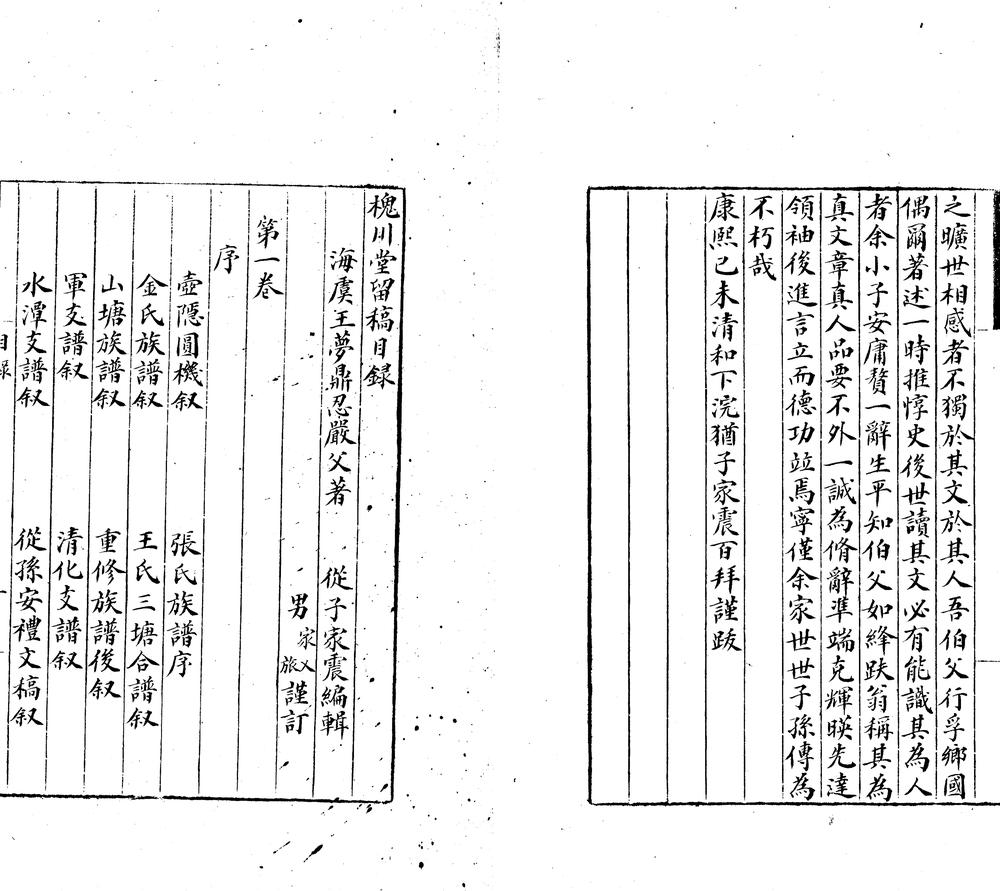 之曠世相感者不獨於其文於其人吾伯父行孚鄉國
偶爾著述一時推惇史後世讀其文必有能識其為人
者余小子安庸贅一辭生平知伯父如絳趺翁稱其為
真文章真人品要不外一誠為脩辭凖端克輝暎先達
領袖後進言立而德功竝焉寧僅余家世世子孫傳為
不朽哉
康熙己未清和下浣猶子家震百拜謹跋
槐川堂留稿目錄
海虞王夢鼎忍嚴父著 從子家震編輯
男家乂旅謹訂
第一卷
序
壺隱圓機叙 張氏族譜序
金氏族譜叙 王氏三塘合譜叙
山塘族譜叙 重修族譜後叙
軍支譜叙 清化支譜叙
水潭支譜叙 從孫安禮文稿叙
目錄